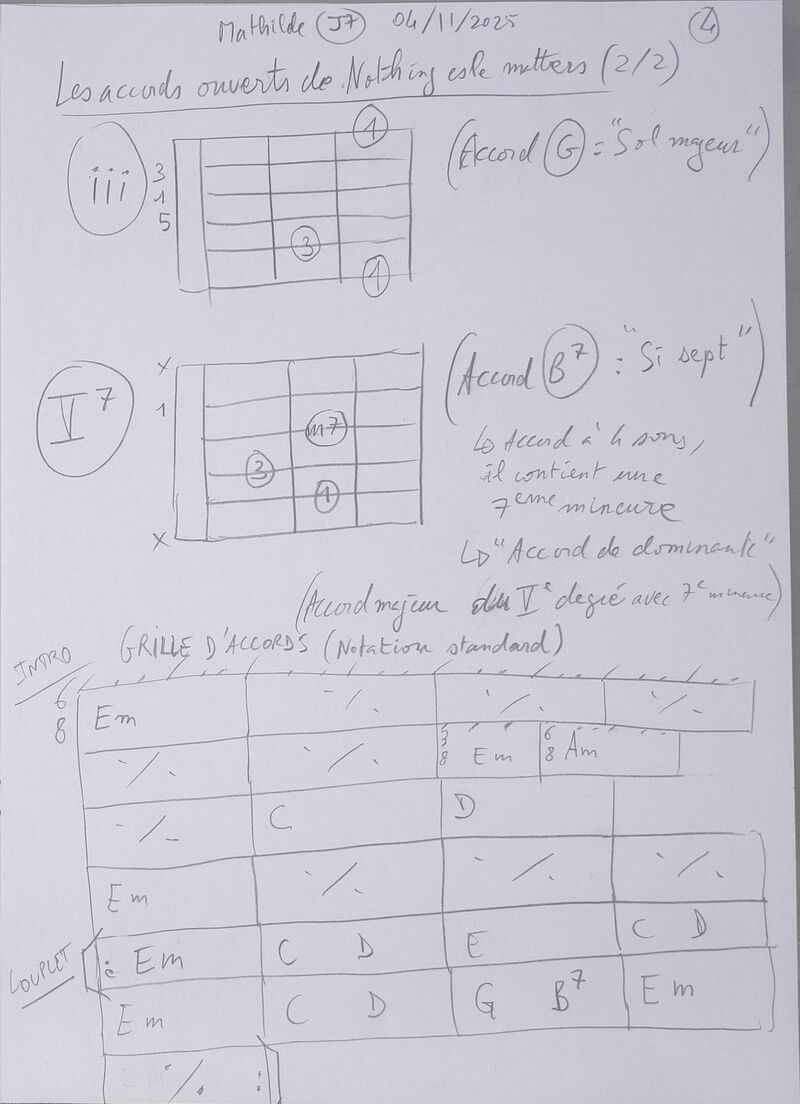 Mathilde J7 04/11/2025 4
Les accords ouverts de Nothing esle matters (2/2)
iii
3
1
5
1
3
1
(Accord G = "Sol majeur")
V7
x
1
x
m7
3
1
(Accord B7 : "Si sept")
↳ Accord à 4 sons,
il contient une
7eme mineure
↳ "Accord de dominante"
(Accord majeur du Ve degré avec 7e mineure)
INTRO
GRILLE D'ACCORDS (Notation standard)
6
8
Em ·/. ·/. ·/.
·/. ·/. 3 8 Em 6 8 Am
·/. C D
Em ·/. ·/. ·/.
COUPLET
: Em C D E C D
Em C D G B7 Em
·/. :